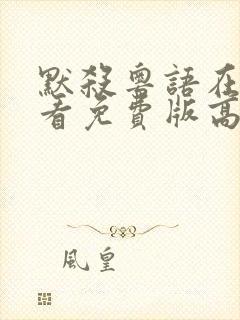 默殺粵語在
看免費版高
風皇